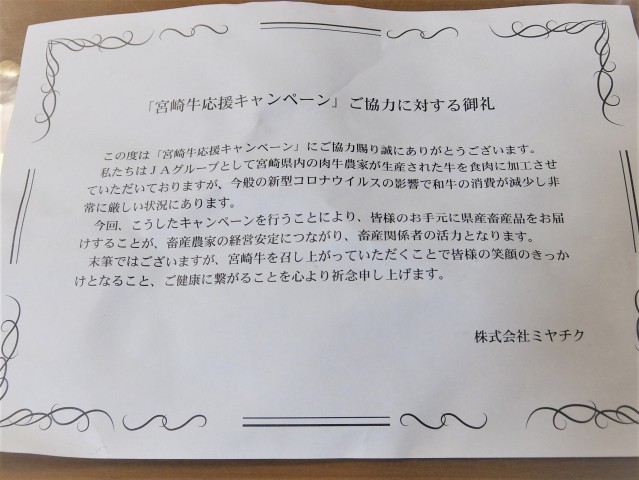 「宮崎牛応援キャンペーン」ご協力に対する御礼
この度は「宮崎牛応援キャンペーン」にご協力賜り誠にありがとうございます。
私たちはＪＡグループとして宮崎県内の肉牛農家が生産された牛を食肉に加工させ
ていただいておりますが、今般の新型コロナウイルスの影響で和牛の消費が減少し非
常に厳しい状況にあります。
今回、こうしたキャンペーンを行うことにより、皆様のお手元に県産畜産品をお届
けすることが、畜産農家の経営安定につながり、畜産関係者の活力となります。
末筆ではございますが、宮崎牛を召し上がっていただくことで皆様の笑顔のきっか
けとなること、ご健康に繋がることを心より祈念申し上げます。
株式会社ミヤチク